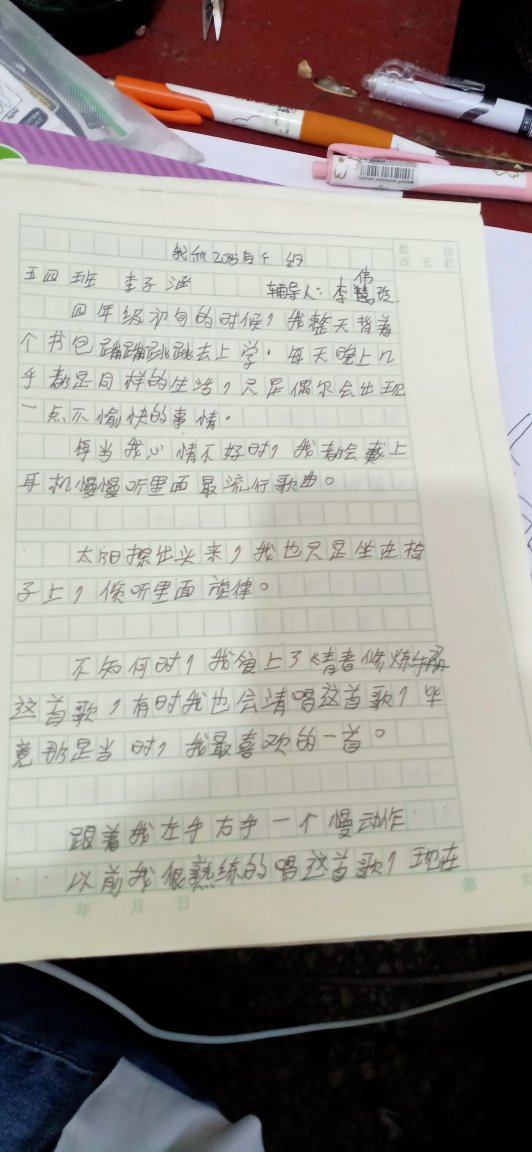 我和2035有个约
批注
改正栏
五四班 李子涵 辅导人：李慧玲
伟
四年级初旬的时候，我整天背着
个书包蹦蹦跳跳去上学。每天晚上几
乎都是同样的生活，只是偶尔会出现
一点不愉快的事情。
每当我心情不好时，我都会戴上
耳机慢慢听里面最流行歌曲。
太阳探出头来，我也只是坐在椅
子上，倾听里面旋律。
不知何时，我爱上了《青春修炼手册
这首歌，有时我也会清唱这首歌，毕
竟那是当时，我最喜欢的一首。
跟着我左手右手一个慢动作
以前我很熟练的唱这首歌，现在
年 月 日
第 页